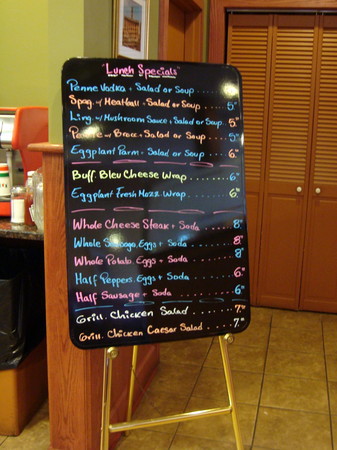 "Lunch Specials"
Penne Vodka + Salad or Soup
Spag. w/ Meatball + Salad or Soup 5"
Ling. w/ Mushroom Sauce + Salad or Soup 5"
w/ Brocc + Salad or Soup 5"
Eggplant Parm + Salad or Soup 6"
Buff. Bleu Cheese Wrap 6"
Eggplant Fresh Mozz Wrap 6"
Whole Cheese Steak + Soda 8"
Whole Eggs + Soda 8"
Whole Potato, Eggs + Soda 8"
Half Peppers, Eggs + Soda 6"
Half Sausage + Soda 6"
Grill. Chicken Salad 7"
Grill. Chicken Caesar Salad 7"